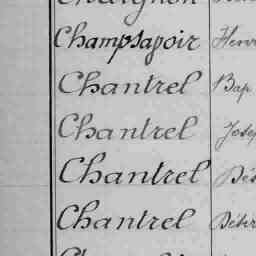 Champsavoir Henri
Chantrel Bap
Chantrel Josep
Chantrel Dés
Chantrel